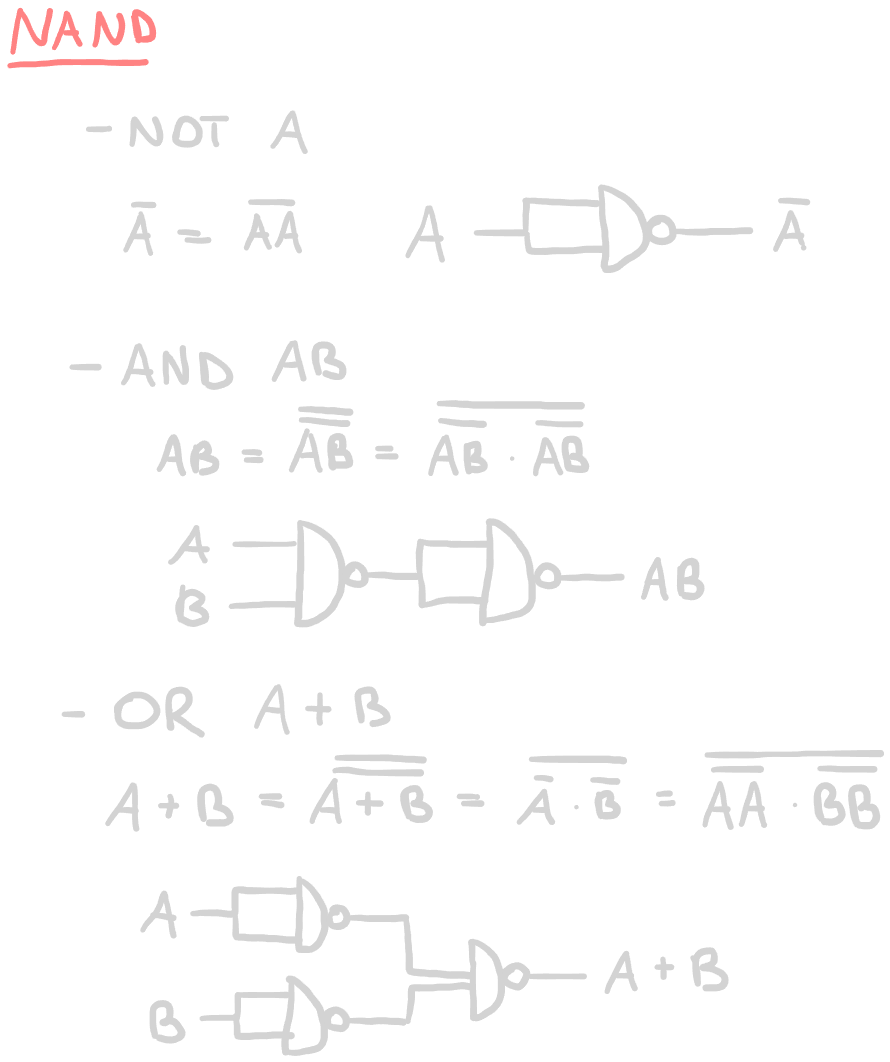 NAND
- NOT A
A̅ = A̅A̅
A A̅
- AND AB
AB = A̿B̿ = \overline{\overline{AB} · \overline{AB}}
A
B
AB
- OR A + B
A + B = \overline{\overline{A + B}} = \overline{A̅ · B̅} = \overline{\overline{AA} · \overline{BB}}
A
A + B
B